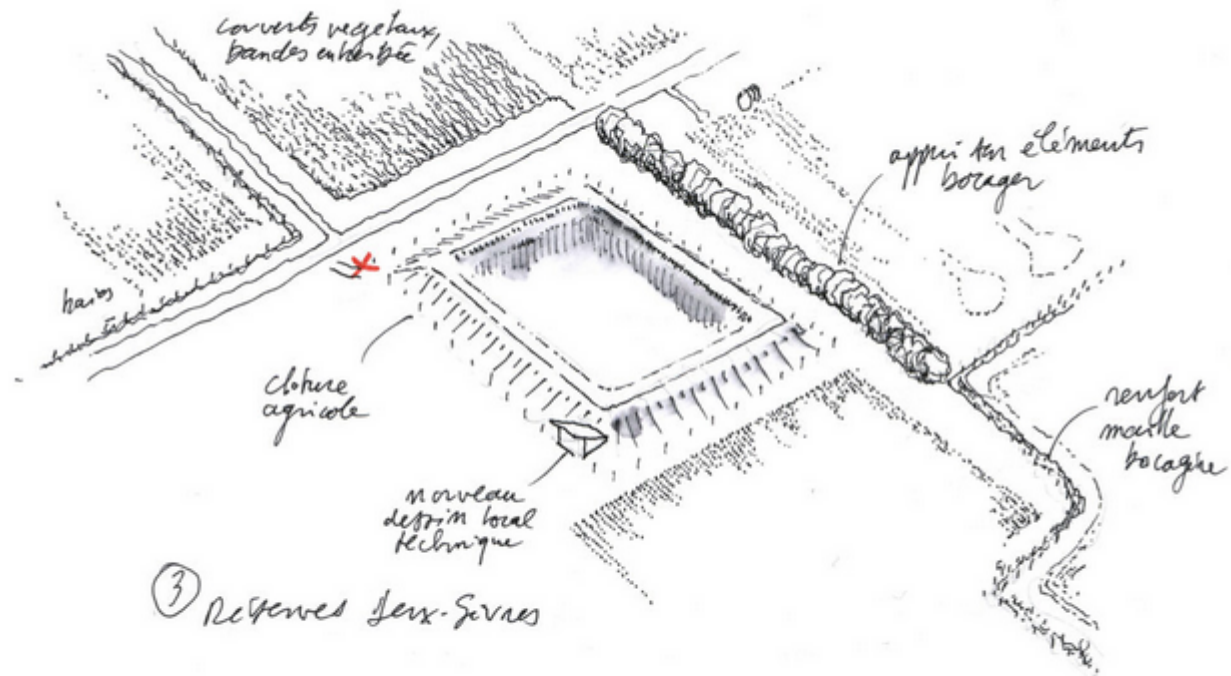 couverts vegetaux,
bandes enherbée
appui sur éléments
bocager
haies
cloture
agricole
renfort
maille
bocagère
nouveau
dessin local
technique
3 Réserves Deux-Sèvres